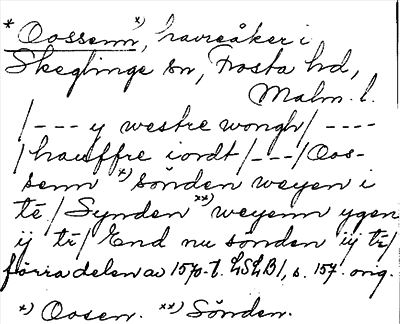 * Oossenn *), havreåker i
Skeglinge sn, Frosta hd,
Malm. l.
/--- y westre wongh/ ----
/hauffre iordt/---/Oos-
senn *) sönden weyen i
tē/Synden **) weyenn ygen
ij tr/ End nu sönden iij tr/
förra delen av 1570-t. LSLB/, s. 157. orig.
*) Oosen. **) Sönden.